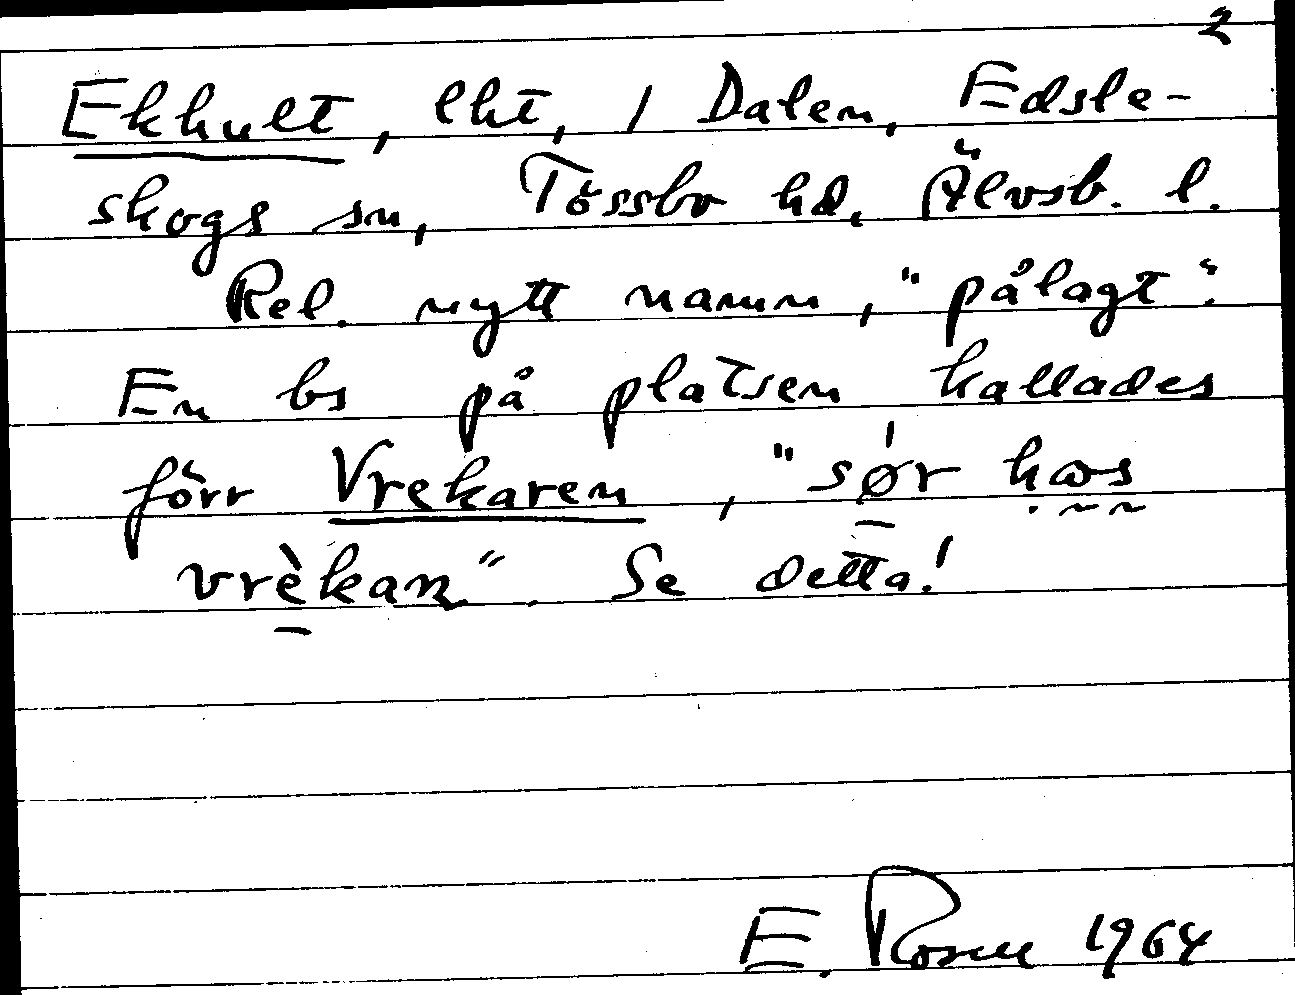 2
Ekhult, lht, 1 Dalen, Edsle-
skogs sn, Tössbo hd, Älvsb. l.
Rel. nytt namn, "pålagt".
En bs på platsen kallades
förr Vrekaren, "sør hos
vrèkan". Se detta!
E. Rosen 1964